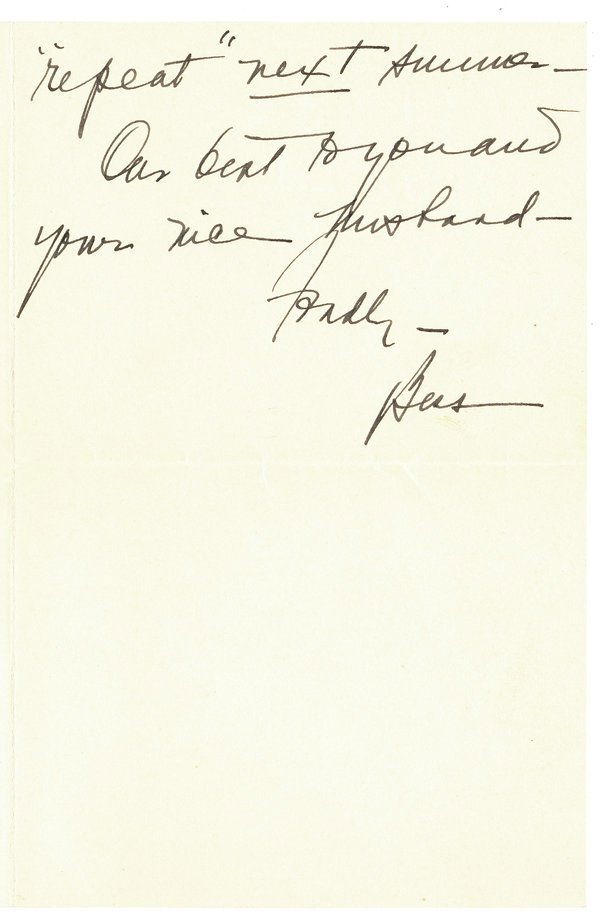 "repeat" next summer—
Our best to you and
your nice husband—
Fondly—
Bess